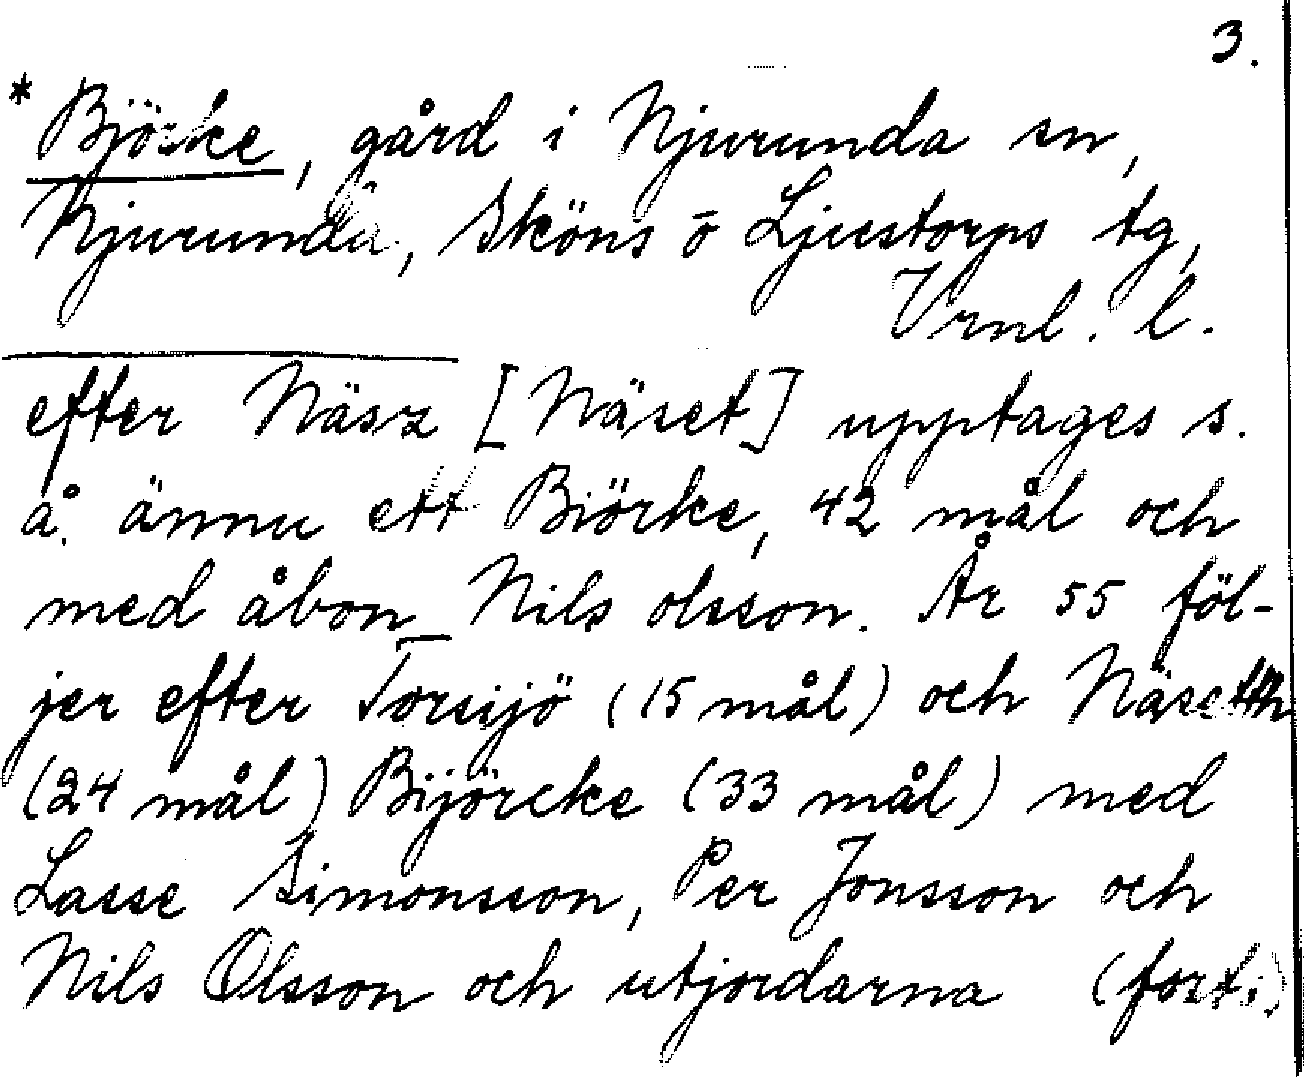 3.
* Björke, gård i Njurunda sn,
Njurunda, Sköns o Ljustorps tg,
Vrnl. l.
efter Näsz [Näset] upptages s.
å. ännu ett Biörke, 42 mål och
med åbon Nils olsson. År 55 föl-
jer efter Torsijö (15 mål) och Näsetth
(24 mål) Bijörcke (33 mål) med
Lasse Simonsson, Per Jonsson och
Nils Olsson och utjordarna (forts.)